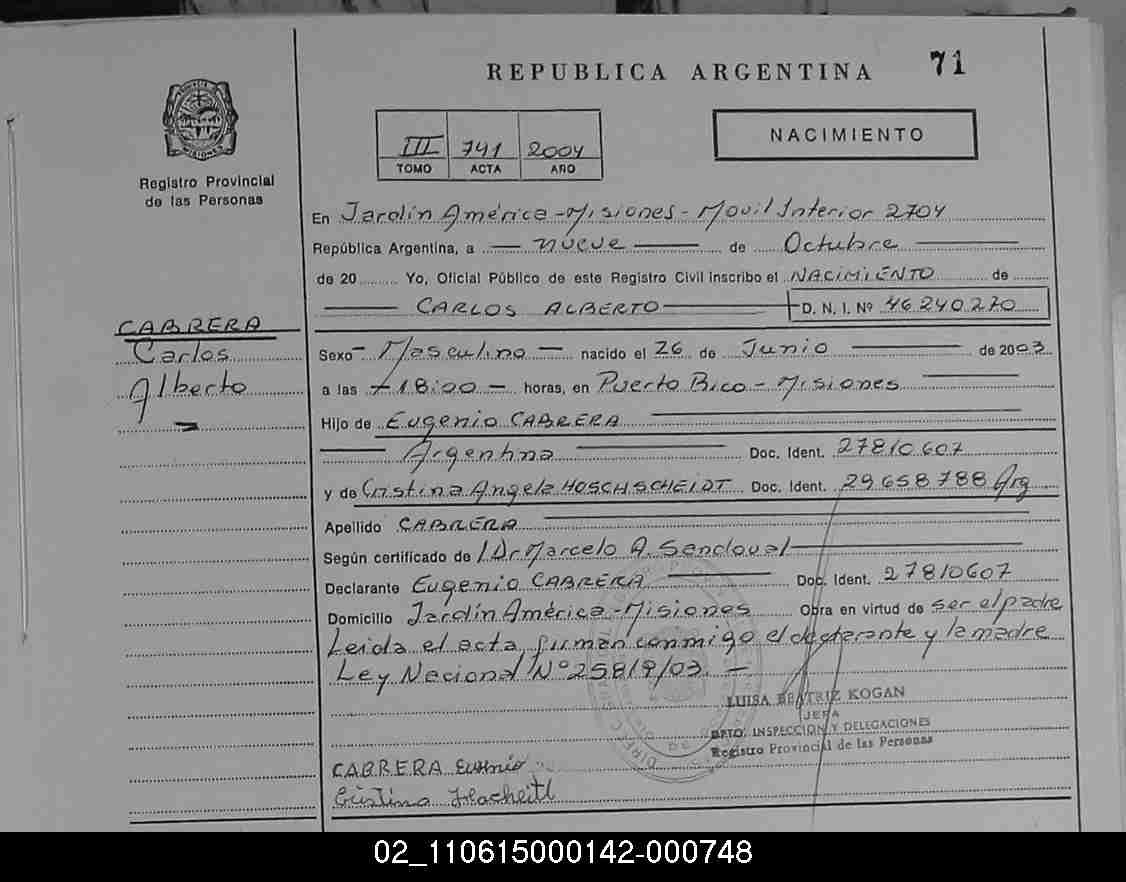 REPUBLICA ARGENTINA 71
NACIMIENTO
III 741 2004
TOMO ACTA AÑO
MISIONES
Registro Provincial
de las Personas
En Jardín América - Misiones - Movil Interior 2704
República Argentina, a nueve de Octubre
de 20 Yo, Oficial Público de este Registro Civil inscribo el NACIMIENTO de
CARLOS ALBERTO D. N. I. Nº 46.240.270
CABRERA
Carlos
Alberto
Sexo - Masculino - nacido el 26 de Junio de 2003
a las - 18:00 - horas, en Puerto Rico - Misiones
Hijo de Eugenio CABRERA
Argentina Doc. Ident. 27810607
y de Cristina Angela HOSCHSCHEIDT Doc. Ident. 29658788 Arg
Apellido CABRERA
Según certificado de Dr Marcelo A. Sandoval
Declarante Eugenio CABRERA Doc. Ident. 27810607
Domicilio Jardín América - Misiones Obra en virtud de ser el padre
Leida el acta firman conmigo el declarante y la madre
Ley Nacional Nº 25819/03. -
LUISA BEATRIZ KOGAN
JEFA
DPTO. INSPECCION Y DELEGACIONES
Registro Provincial de las Personas
CABRERA Eugenio
Cristina
02_110615000142-000748